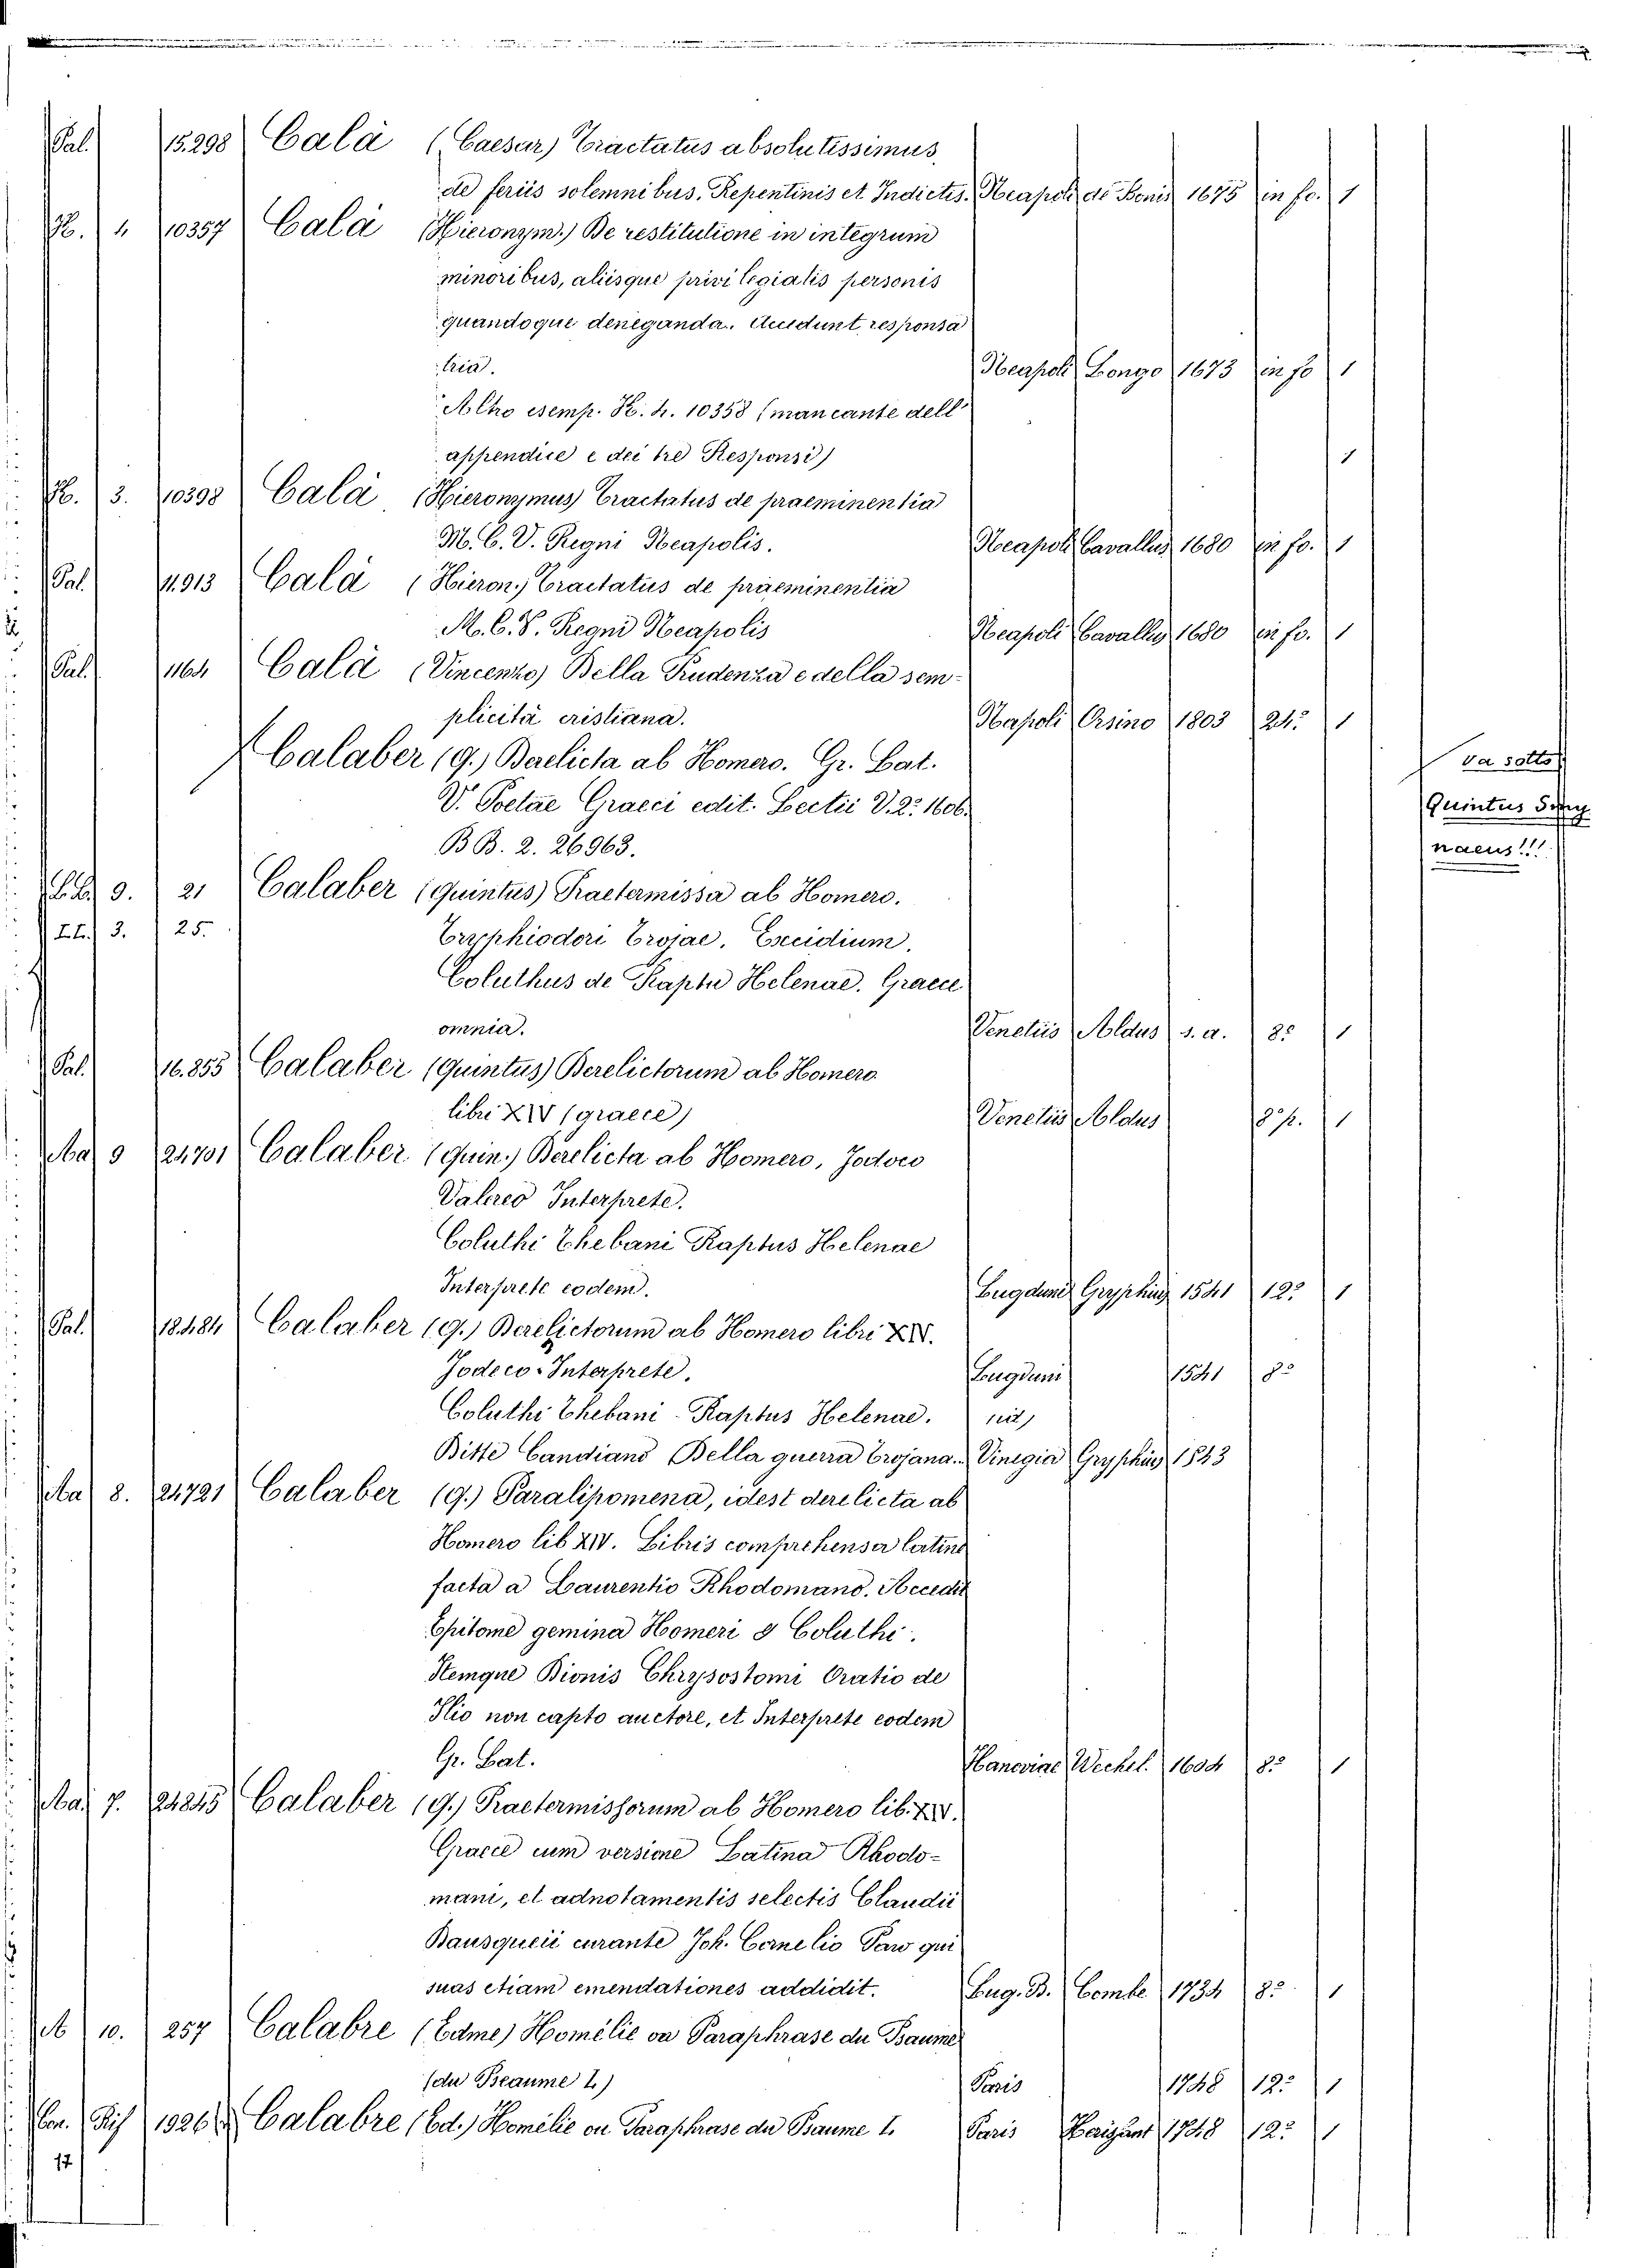 Pal. 15.298 Calà (Caesar) Tractatus absolutissimus,
de feriis solemnibus, Repentinis et Indictis. Neapoli de Bonis 1675 in fo. 1
H. 4 10357 Calà (Hieronym.) De restitutione in integrum
minoribus, aliisque privilegialis personis
quandoque deneganda. Accedunt responsa
tria. Neapoli Longo 1673 in fo 1
Altro esemp. H. 4. 10358 (mancante dell'
appendice e dei tre Responsi) 1
H. 3. 10398 Calà (Hieronymus) Tractatus de praeminentia
M. C. V. Regni Neapolis. Neapoli Cavallus 1680 in fo. 1
Pal. 11.913 Calà (Hieron.) Tractatus de praeminentia
M. C. V. Regni Neapolis Neapoli Cavallus 1680 in fo. 1
Pal. 1164 Calà (Vincenzo) Della Prudenza e della sem-
plicità cristiana. Napoli Orsino 1803 24.° 1
Calaber (Q.) Derelicta ab Homero. Gr. Lat.
V. Poetae Graeci edit. Lectii V. 2.° 1606.
BB. 2. 26963.
va sotto
Quintus Smyr
naeus!!!
9. 21 Calaber (Quintus) Praetermissa ab Homero.
3. 25. Tryphiodori Trojae. Excidium.
Coluthus de Raptu Helenae. Graece
omnia. Venetiis Aldus s. a. 8° 1
Pal. 16.855 Calaber (Quintus) Derelictorum ab Homero
libri XIV (graece) Venetiis Aldus 8° p. 1
9 24701 Calaber (Quin.) Derelicta ab Homero, Jodoco
Valareo Interprete.
Coluthi Thebani Raptus Helenae
Interprete eodem. Lugduni Gryphius 1541 12° 1
Pal. 18.484 Calaber (Q.) Derelictorum ab Homero libri XIV.
Jodeco Interprete. Lugduni 1541 8°
Coluthi Thebani Raptus Helenae.
Ditte Candiano Della guerra Trojana. Vinegia Gryphius 1543
8. 24721 Calaber (Q.) Paralipomena, idest derelicta ab
Homero lib XIV. Libris comprehensa latine
facta a Laurentio Rhodomano. Accedit
Epitome gemina Homeri & Coluthi.
Itemque Dionis Chrysostomi Oratio de
Ilio non capto auctore, et Interprete eodem
Gr. Lat. Hanoviae Wechel. 1604 8° 1
7. 24845 Calaber (Q.) Praetermissorum ab Homero lib. XIV.
Graece cum versione Latina Rhodo-
mani, et adnotamentis selectis Claudii
Dausqueii curante Joh. Cornelio Paw qui
suas etiam emendationes addidit. Lug. B. Combe 1734 8° 1
10. 257 Calabre (Edme) Homélie ou Paraphrase du Psaume
(du Pseaume L) Paris 1748 12° 1
1926 Calabre (Ed.) Homélie ou Paraphrase du Psaume L Paris 1748 12° 1
17